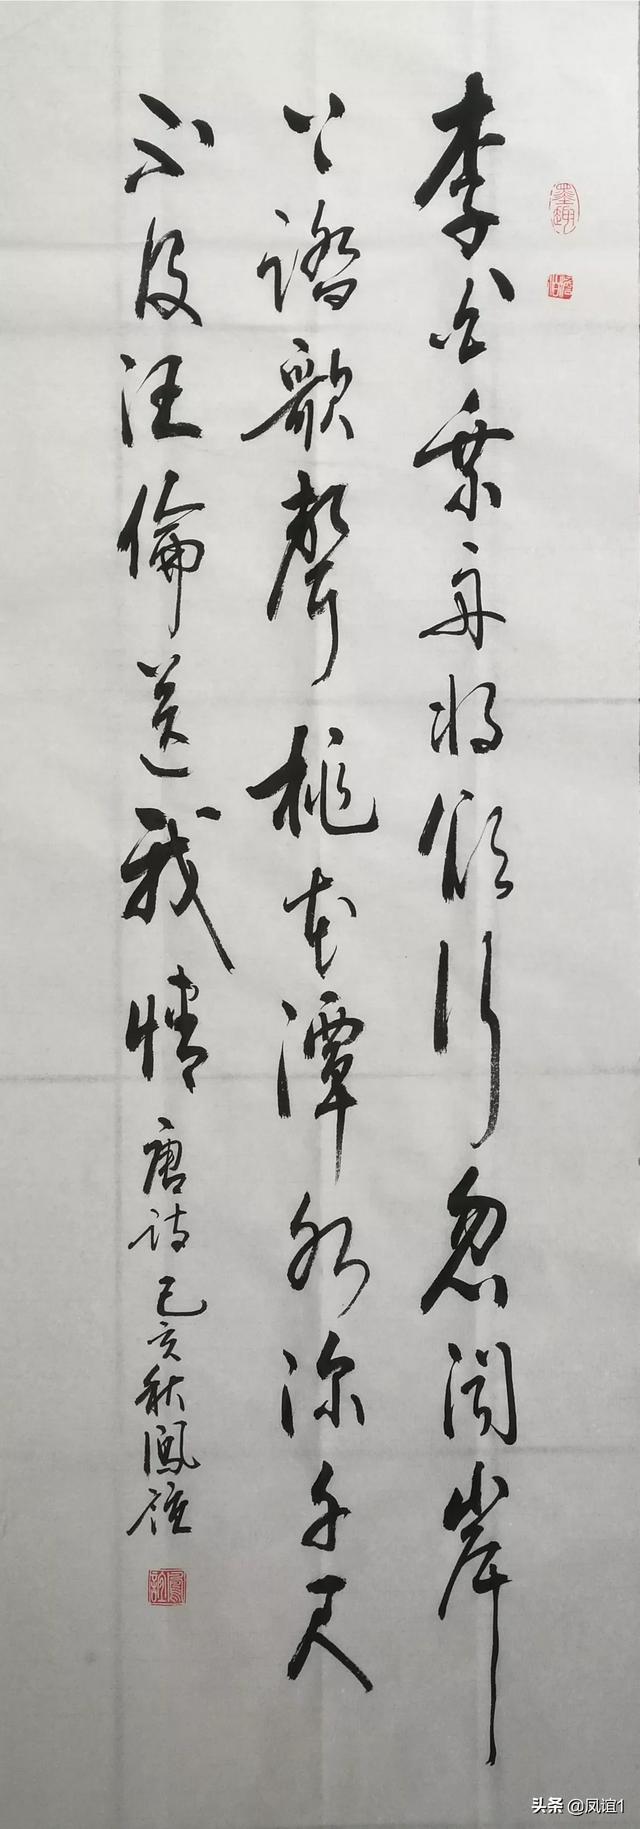 墨趣
李白乘舟将欲行忽闻岸
上踏歌聲桃花潭水深千尺
不及汪倫送我情 唐诗 己亥秋鳳谊
鳳誼
头条 @凤谊1